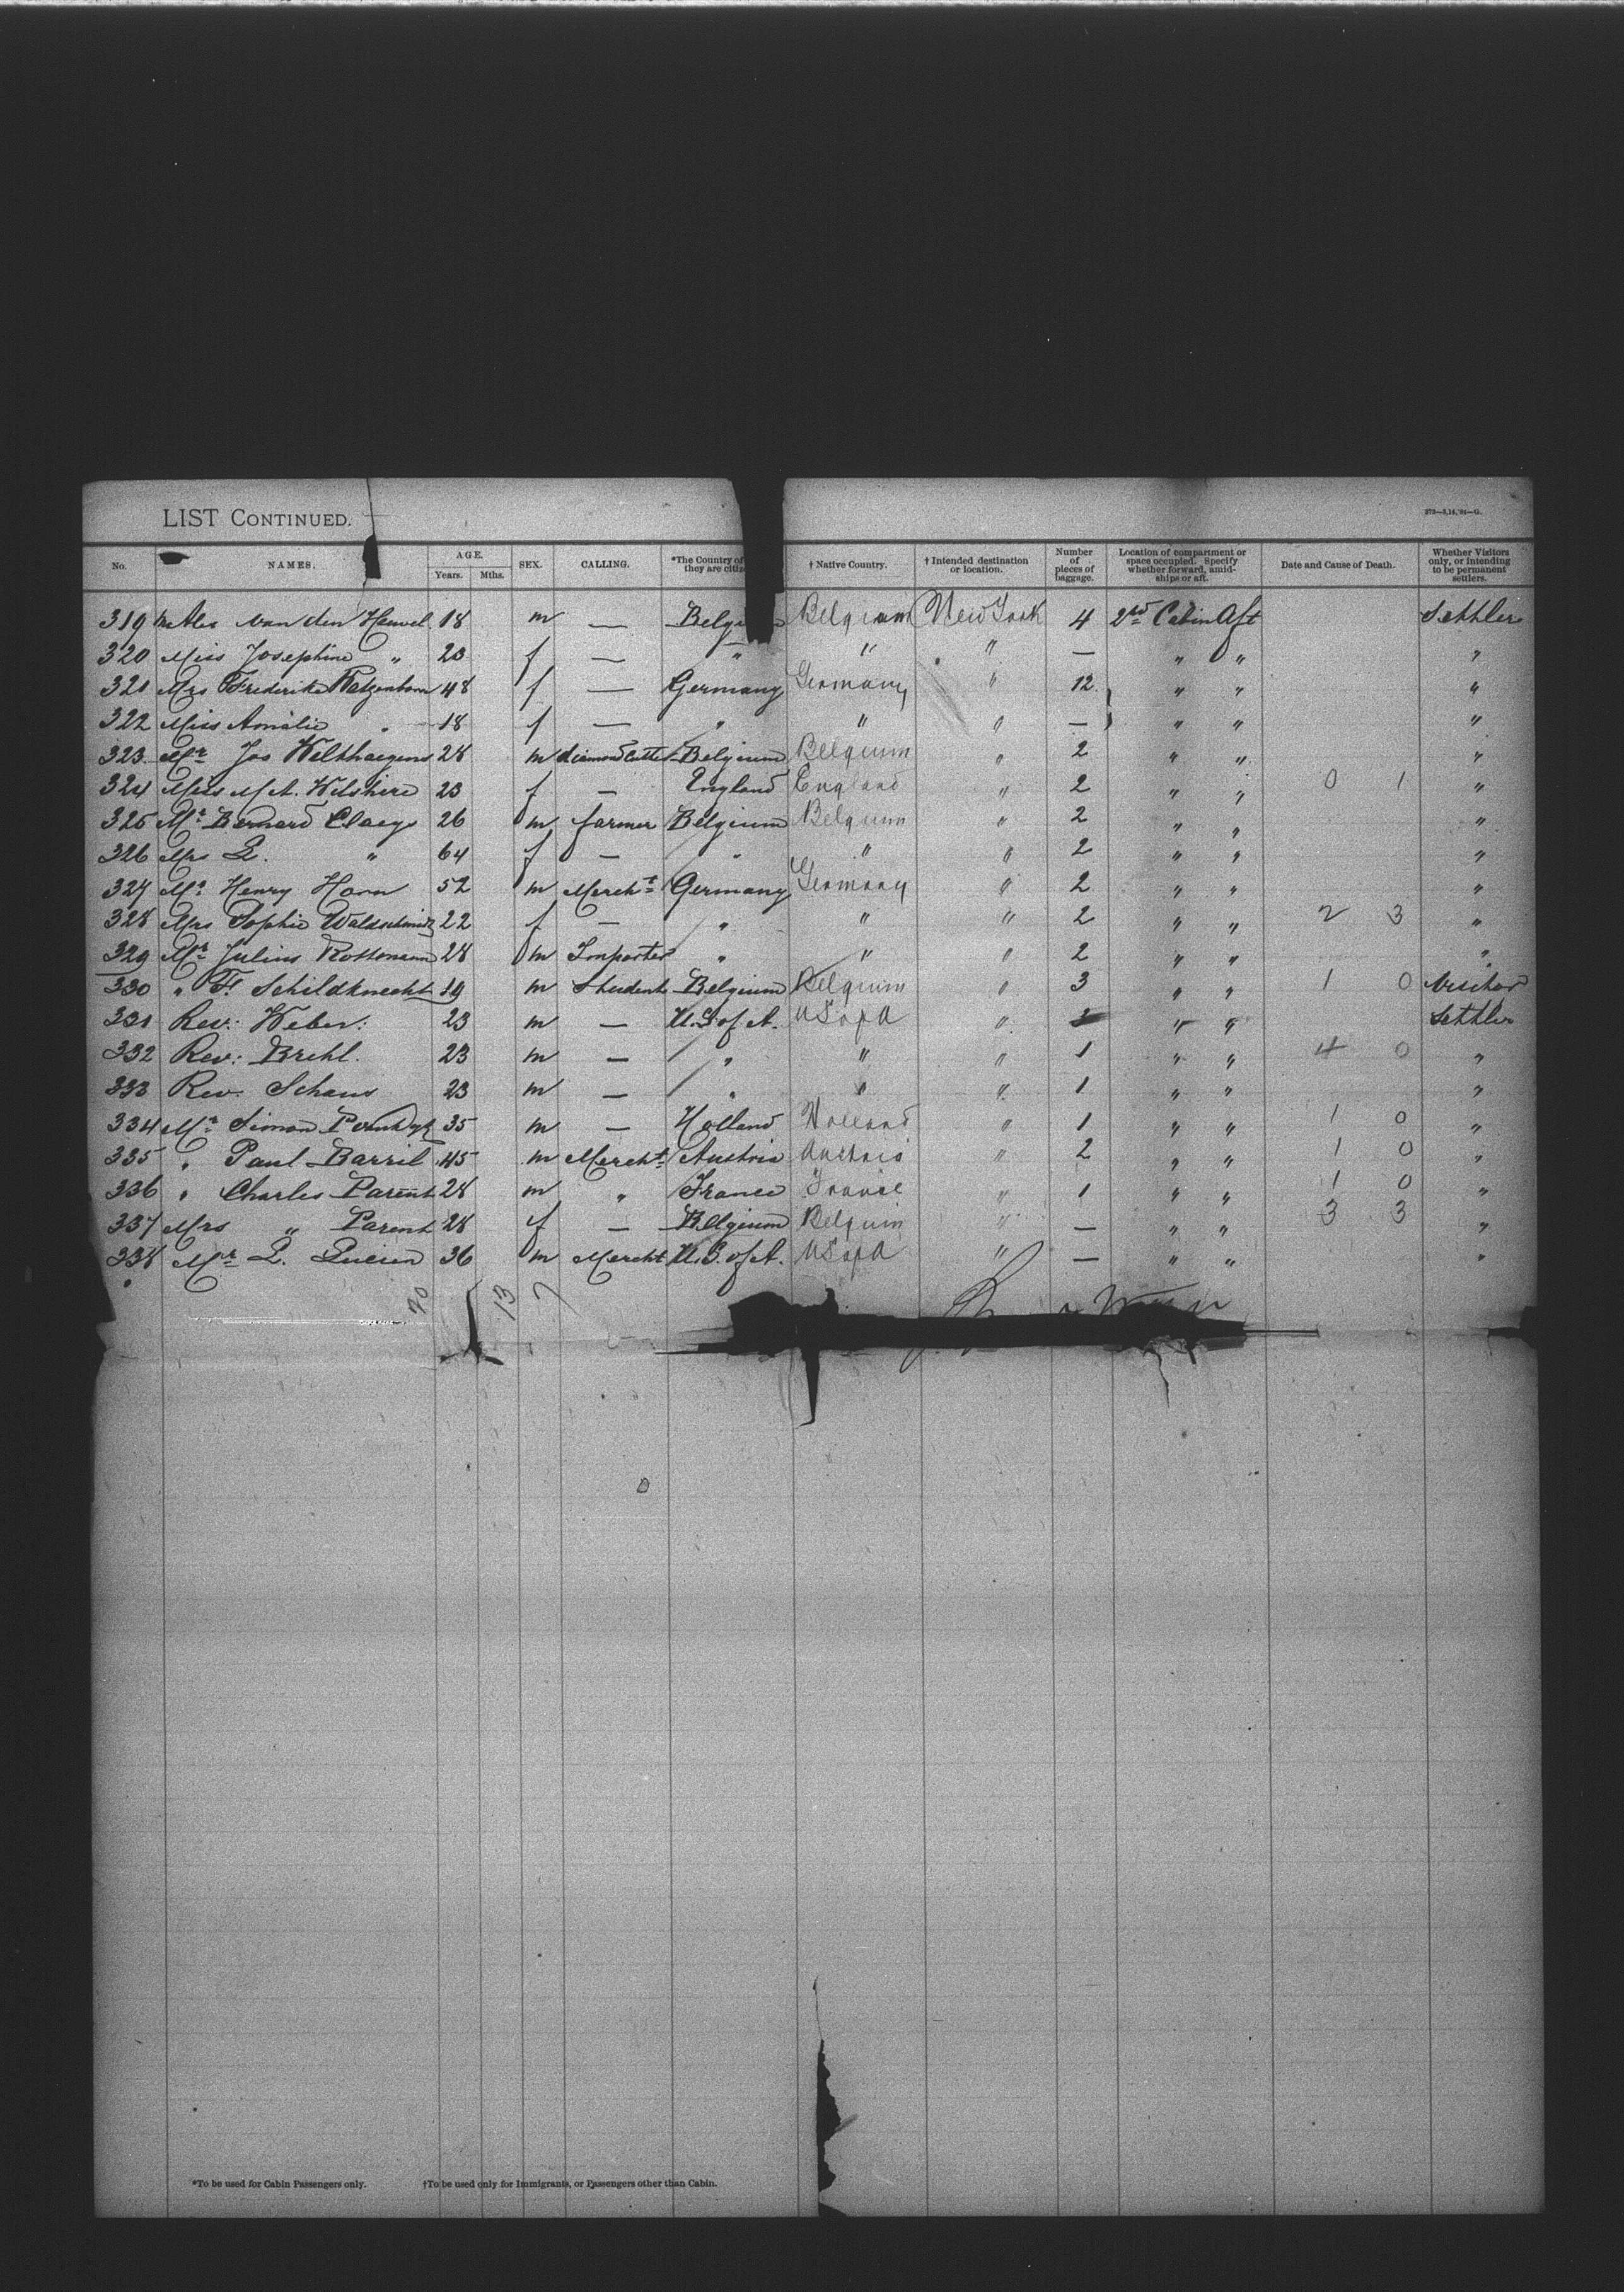 LIST CONTINUED.
273—3,14,'91—G.
No. NAMES. AGE. Years. Mths. SEX. CALLING. *The Country of they are citiz † Native Country. † Intended destination or location. Number of pieces of baggage. Location of compartment or space occupied. Specify whether forward, amidships or aft. Date and Cause of Death. Whether Visitors only, or intending to be permanent settlers.
319 van den Heuvel 18 m — Belgi Belgium New York 4 2nd Cabin Aft Settler
320 Miss Josephine " 23 f — " " " — " " "
321 Mrs Frederike 48 f — Germany Germany " 12 " " "
322 Miss Amalie " 18 f — " " " — " " "
323 Mr Jos 28 m diamond cutter Belgium Belgium " 2 " " "
324 Miss M A. Wilshire 23 f — England England " 2 " " 0 1 "
325 Mr Bernard Claeys 26 m farmer Belgium Belgium " 2 " " "
326 Mrs L. " 64 f — " " " 2 " " "
327 Mr Henry Horn 52 m Mercht Germany Germany " 2 " " "
328 Mrs Sophie Waldschmidt 22 f — " " " 2 " " 2 3 "
329 Mr Julius 28 m Importer " " " 2 " " "
330 " Schildknecht 19 m Student Belgium Belgium " 3 " " 1 0 Visitor
331 Rev: Weber: 23 m — U.S of A. U S of A " " " Settler
332 Rev: Brehl. 23 m — " " " 1 " " 4 0 "
333 Rev. Schaus 23 m — " " " 1 " " "
334 Mr Simon 35 m — Holland Holland " 1 " " 1 0 "
335 " Paul Barril 45 m Mercht Austria Austria " 2 " " 1 0 "
336 " Charles Parent 28 m " France France " 1 " " 1 0 "
337 Mrs " Parent 28 f — Belgium Belgium " — " " 3 3 "
338 Mr L. 36 m Mercht U.S. of A. U S of A " — " " "
20 13 7
*To be used for Cabin Passengers only. †To be used only for Immigrants, or Passengers other than Cabin.